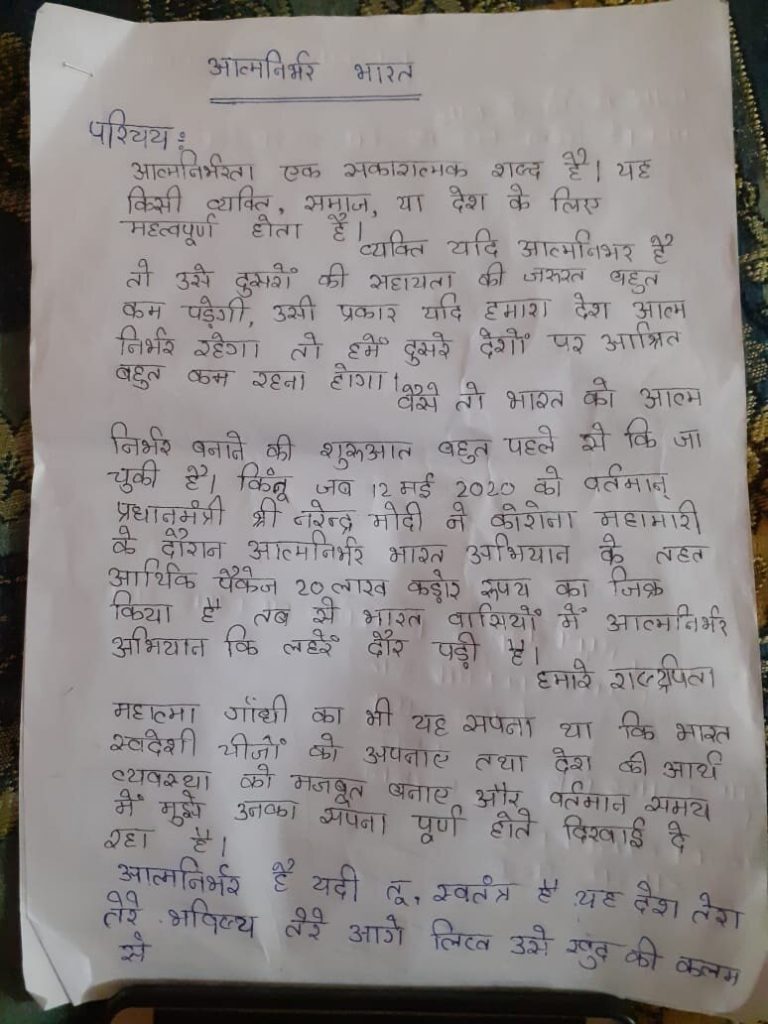 आत्मनिर्भर भारत
परिचय :
आत्मनिर्भरता एक सकारात्मक शब्द है। यह
किसी व्यक्ति, समाज, या देश के लिए
महत्वपूर्ण होता है।
व्यक्ति यदि आत्मनिभर है
तो उसे दुसरों की सहायता की जरुरत बहुत
कम पड़ेगी, उसी प्रकार यदि हमारा देश आत्म
निर्भर रहेगा तो हमें दुसरे देशों पर आश्रित
बहुत कम रहना होगा।
वैसे तो भारत को आत्म
निर्भर बनाने की शुरुआत बहुत पहले से कि जा
चुकी है। किंनू जब 12 मई 2020 को वर्तमान्
प्रधानमंत्री श्री नरेन्द्र मोदी ने कोरोना महामारी
के दौरान आत्मनिर्भर भारत अभियान के तहत
आर्थिक पैकेज 20 लाख कड़ोर रूपय का जिक्र
किया है तब से भारत वासियों में आत्मनिर्भर
अभियान कि लहरें दौर पड़ी है।
हमारे राष्ट्रपिता
महात्मा गाँधी का भी यह सपना था कि भारत
स्वदेशी चीजों को अपनाए तथा देश की आर्थ
व्यवस्था को मजबूत बनाए और वर्तमान समय
में मुझे उनका सपना पूर्ण होते दिखाई दे
रहा है।
आत्मनिर्भर है यदी तू, स्वतंत्र है यह देश तेरा
तेरे भविष्य तेरे आगे लिख उसे खुद की कलम
से